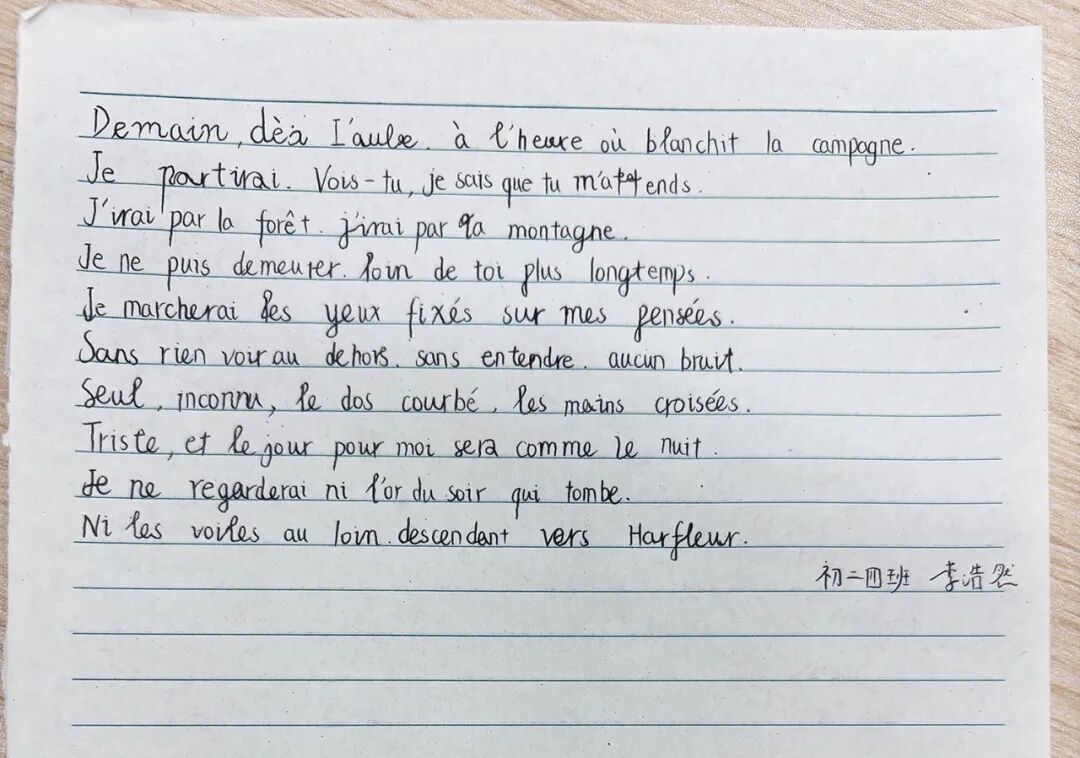 Demain, dès l'aube. à l'heure où blanchit la campagne.
Je partirai. Vois-tu, je sais que tu m'attends.
J'irai par la forêt. j'irai par la montagne.
Je ne puis demeurer. loin de toi plus longtemps.
Je marcherai les yeux fixés sur mes pensées.
Sans rien voir au dehors. sans entendre. aucun bruit.
Seul, inconnu, le dos courbé, les mains croisées.
Triste, et le jour pour moi sera comme le nuit.
Je ne regarderai ni l'or du soir qui tombe.
Ni les voiles au loin. descendant vers Harfleur.
初二四班 李浩然